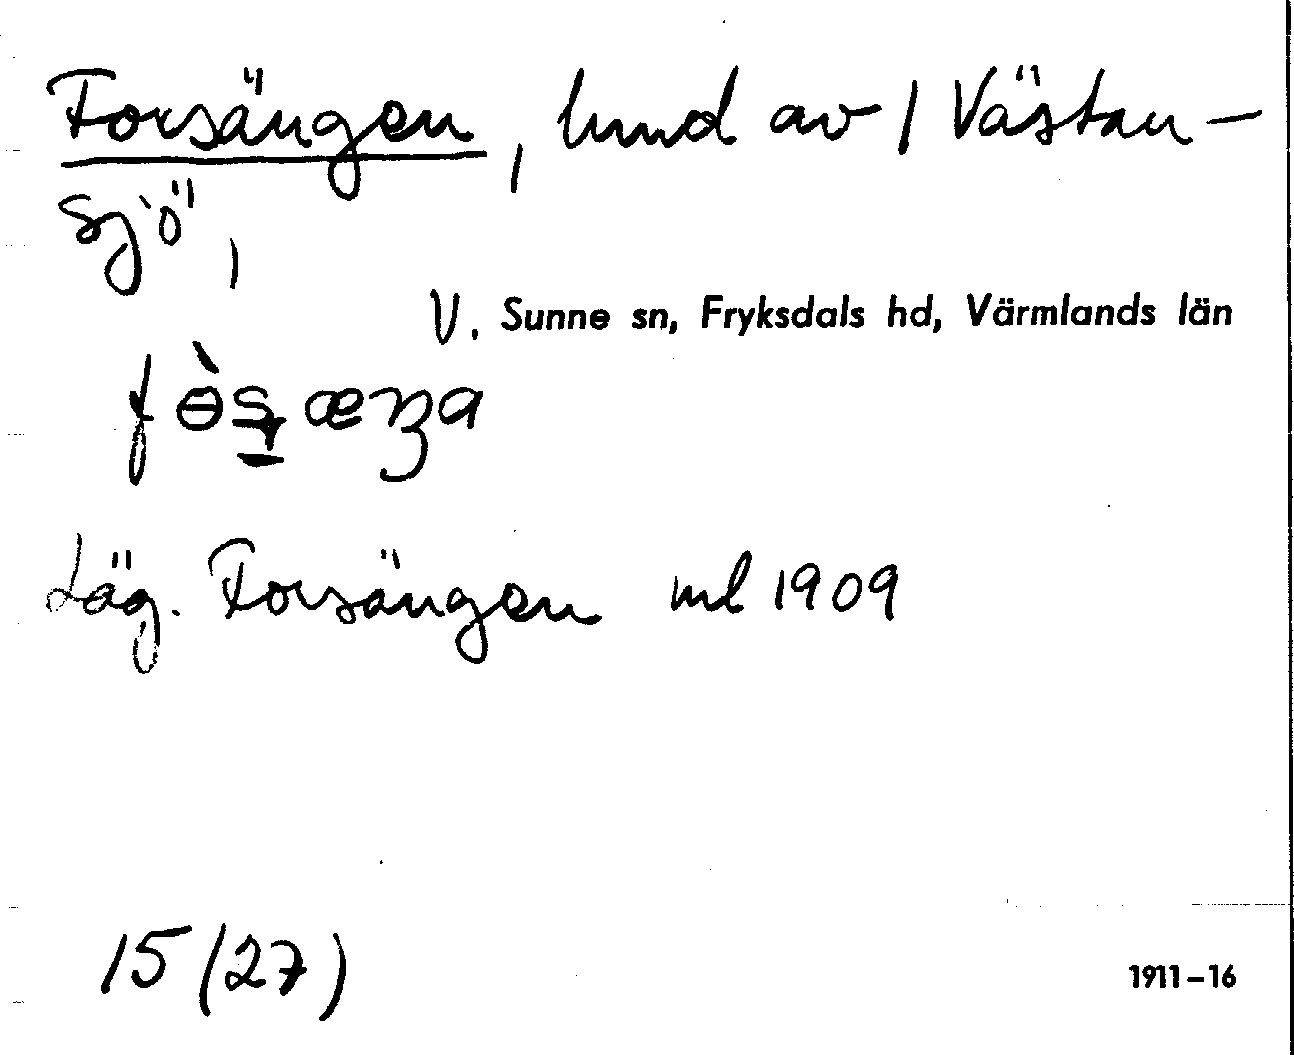 Forsängen, hmd av 1 Västan-
sjö,
V. Sunne sn, Fryksdals hd, Värmlands län
Läg. Forsängen ml 1909
15 (27)
1911-16